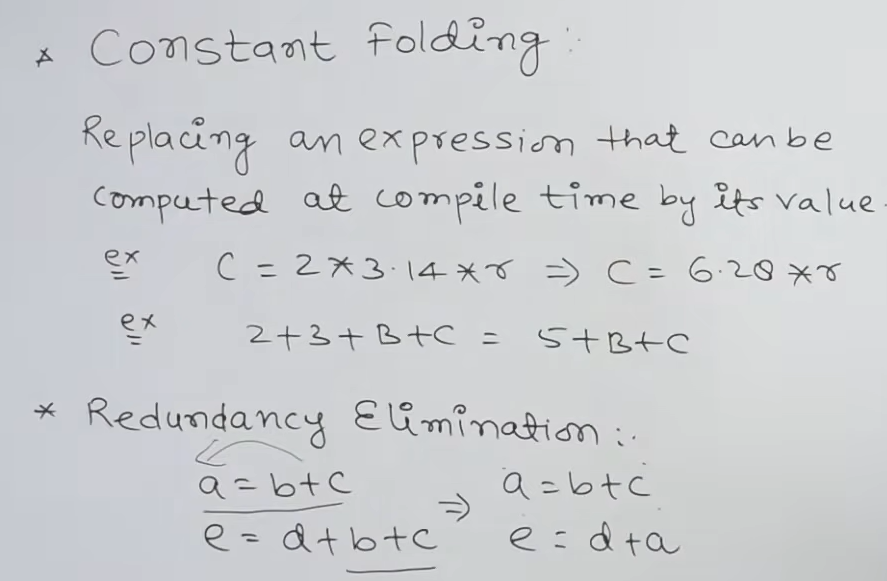 * Constant Folding :
Replacing an expression that can be
computed at compile time by its value.
ex C = 2*3.14*r ⇒ C = 6.28*r
ex 2+3+B+C = 5+B+C
* Redundancy Elimination :.
a = b+c ⇒ a = b+c
e = d+b+c e = d+a